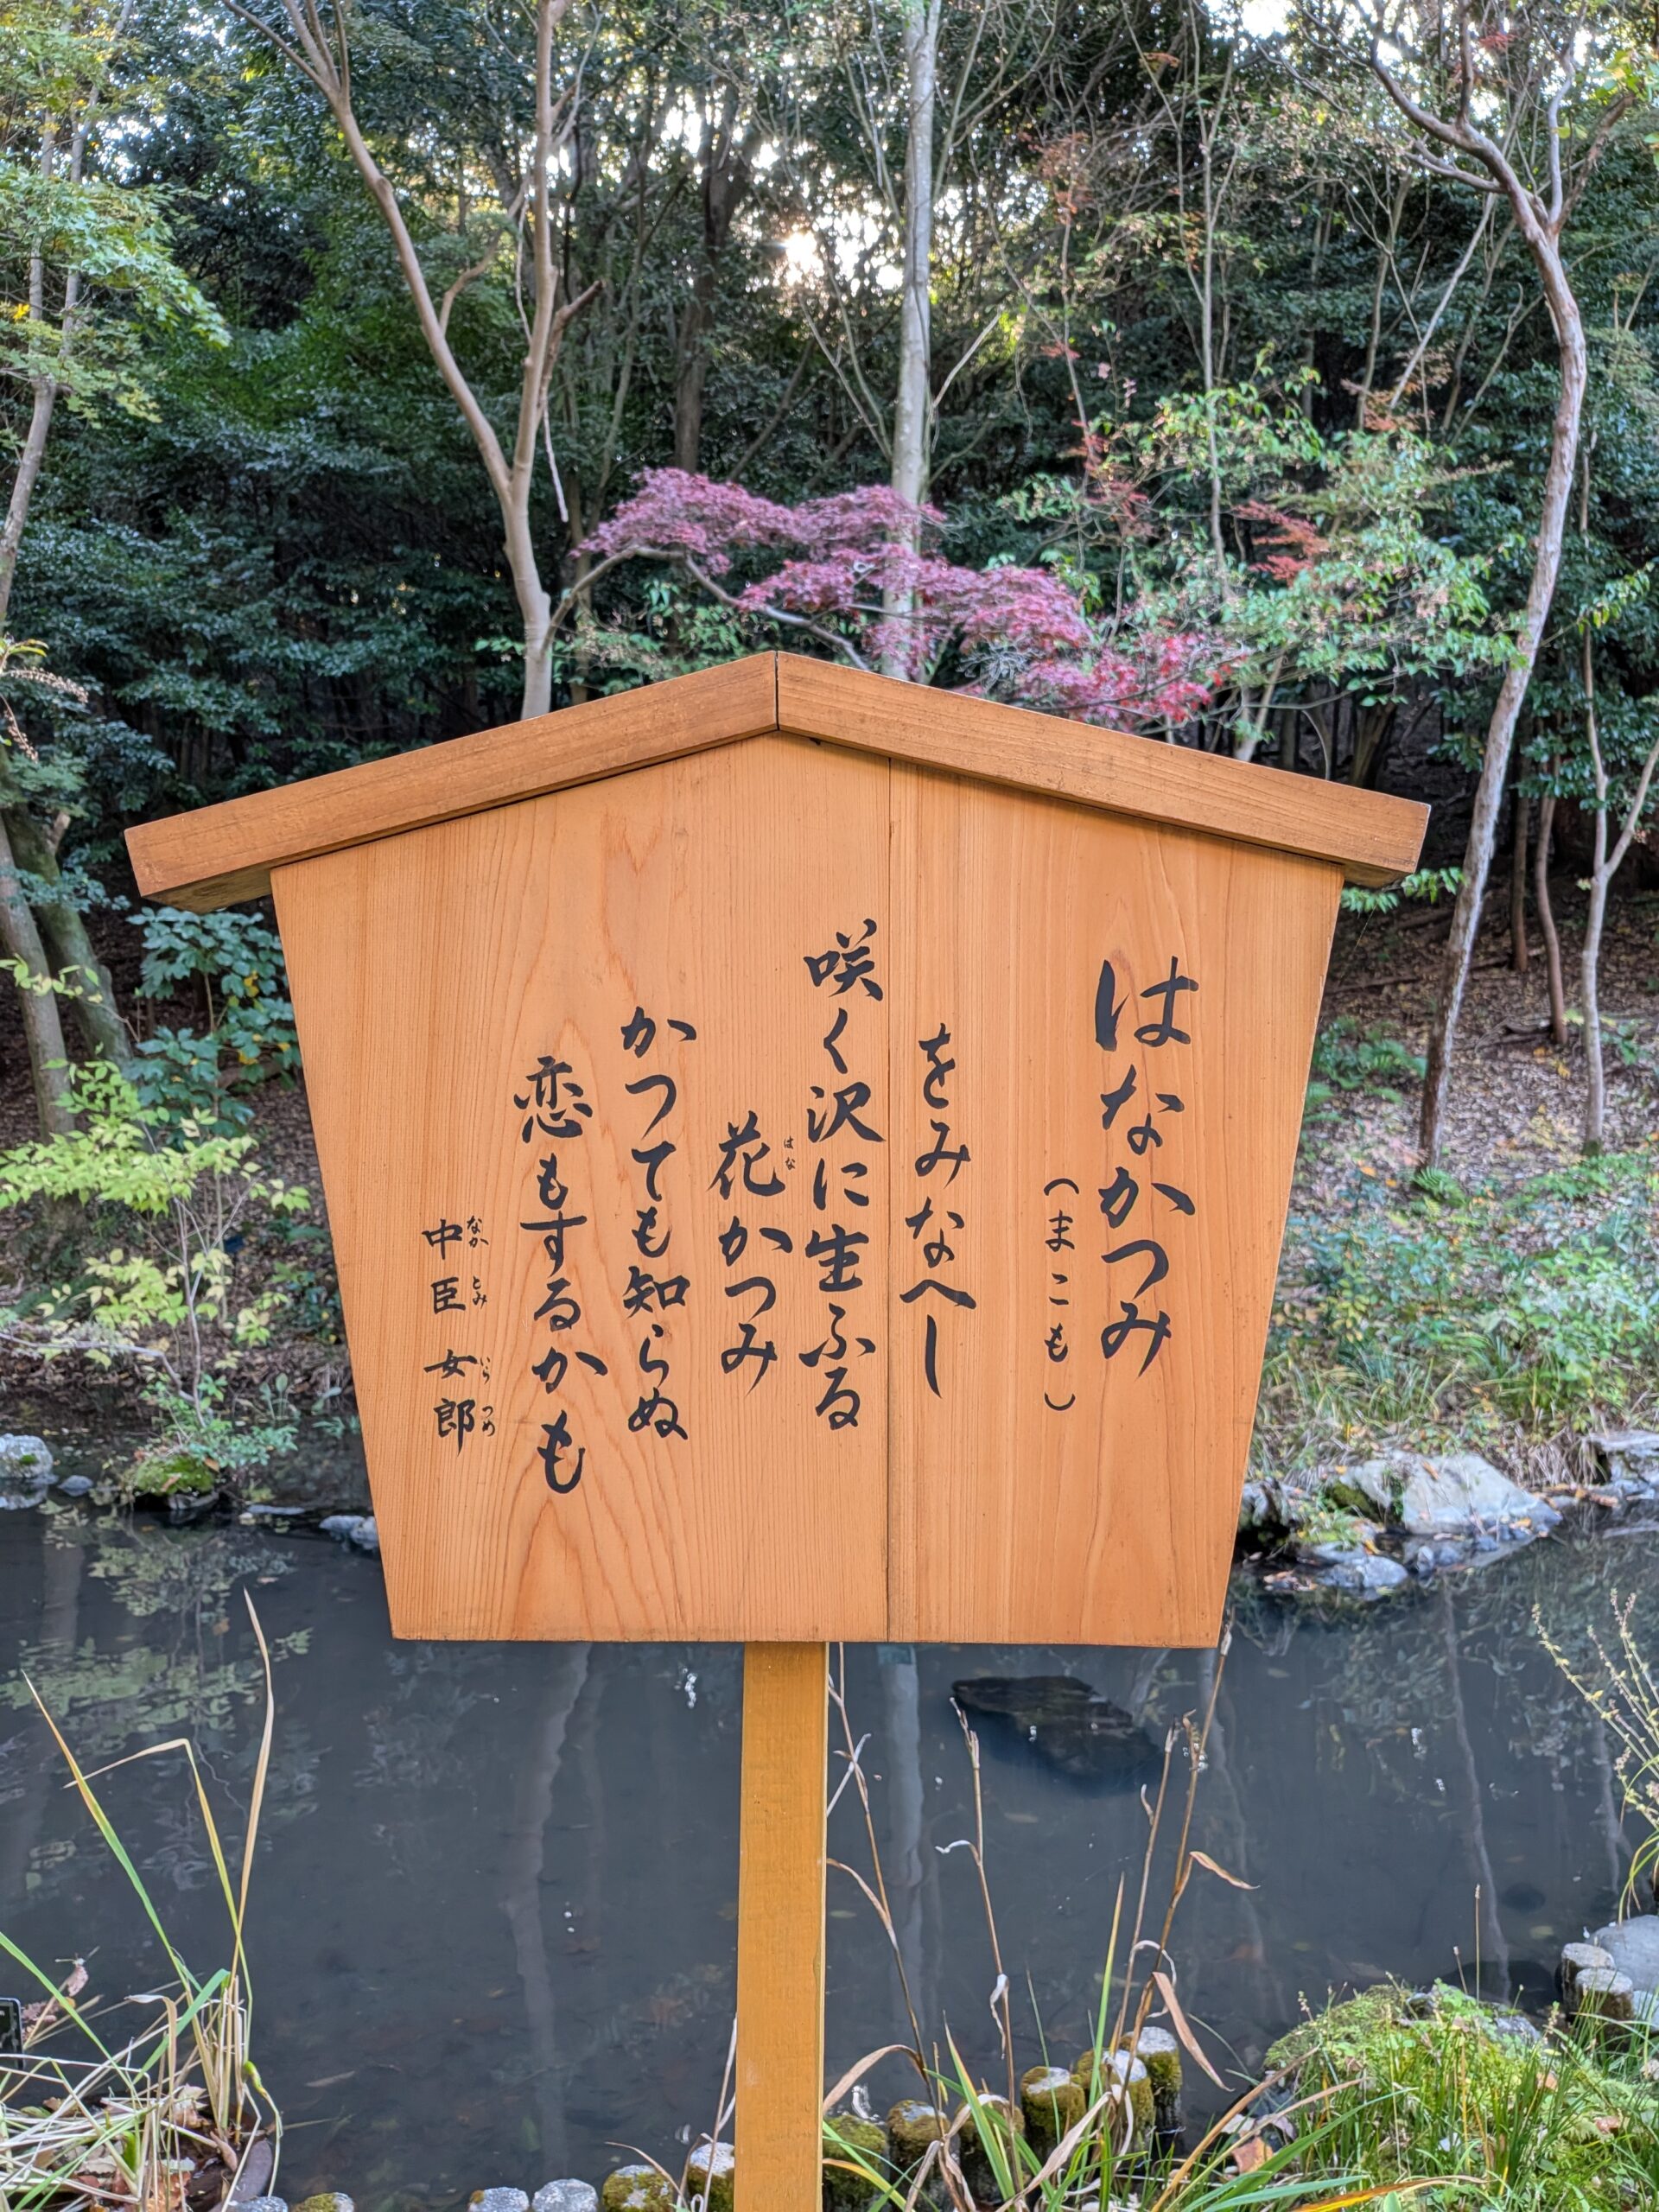 はなかつみ
（まこも）
をみなへし
咲く沢に生ふる
花かつみ
はな
かつても知らぬ
恋もするかも
中臣女郎
なかとみ いらつめ